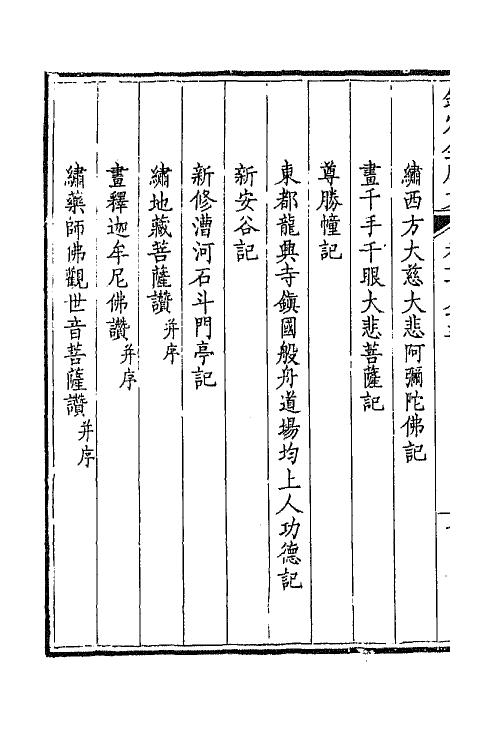 繡西方大慈大悲阿彌陀佛記
畫千手千眼大悲菩薩記
尊勝幢記
東都龍興寺鎮國般舟道場均上人功德記
新安谷記
新修漕河石斗門亭記
繡地藏菩薩讚并序
畫釋迦牟尼佛讚并序
繡藥師佛觀世音菩薩讚并序